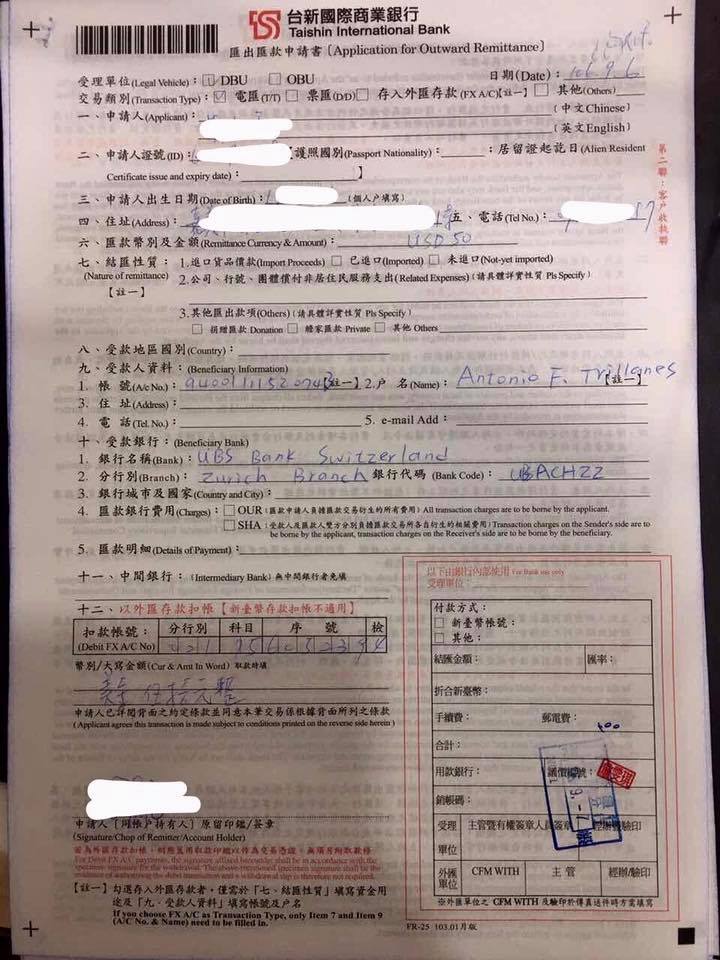 台新國際商業銀行
Taishin International Bank
匯出匯款申請書〔Application for Outward Remittance〕
受理單位(Legal Vehicle)：□ DBU □ OBU 日期(Date)：106.9.6
交易類別(Transaction Type)：☑ 電匯(T/T) □ 票匯(D/D) □ 存入外匯存款(FX A/C)【註一】□ 其他(Others)
一、申請人(Applicant)：(中文Chinese)
(英文English)
二、申請人證號(ID)：【護照國別(Passport Nationality)：；居留證起訖日(Alien Resident
Certificate issue and expiry date)：】
三、申請人出生日期(Date of Birth)：(個人戶填寫)
四、住址(Address)：五、電話(Tel No.)：
六、匯款幣別及金額(Remittance Currency & Amount)：USD 50
七、結匯性質：1.進口貨品價款(Import Proceeds) □ 已進口(Imported) □ 未進口(Not-yet imported)
(Nature of remittance) 2.公司、行號、團體償付非居住民服務支出(Related Expenses)(請具體詳實性質 Pls Specify)
【註一】
3.其他匯出款項(Others)(請具體詳實性質 Pls Specify)
□ 捐贈匯款 Donation □ 贍家匯款 Private □ 其他 Others
八、受款地區國別(Country)：
九、受款人資料：(Beneficiary Information)
1. 帳號(A/c No.)：【註一】2.戶 名(Name)：Antonio F. Trillanes【註一】
3. 住 址(Address)：
4. 電 話(Tel. No.)：5. e-mail Add：
十、受款銀行：(Beneficiary Bank)
1. 銀行名稱(Bank)：UBS Bank Switzerland
2. 分行別(Branch)：Zurich Branch 銀行代碼 (Bank Code)：UBACHZZ
3. 銀行城市及國家(Country and City)：
4. 匯款銀行費用(Charges)：□ OUR (匯款申請人負擔匯款交易衍生的所有費用) All transaction charges are to be borne by the applicant.
□ SHA (受款人及匯款人雙方分別負擔匯款交易所各自衍生的相關費用) Transaction charges on the Sender's side are to
be borne by the applicant, transaction charges on the Receiver's side are to be borne by the beneficiary.
5. 匯款明細(Details of Payment)：
十一、中間銀行：(Intermediary Bank) 無中間銀行者免填
十二、以外匯存款扣帳【新臺幣存款扣帳不適用】
扣款帳號：分行別 科目 序 號 檢
(Debit FX A/C No)
幣別/大寫金額(Cur & Amt In Word) 取款時填
伍拾元整
申請人已詳閱背面之約定條款並同意本筆交易係根據背面所列之條款
(Applicant agrees this transaction is made subject to conditions printed on the reverse side herein)
申請人〔同帳戶持有人〕原留印鑑/簽章
(Signature/Chop of Remitter/Account Holder)
【註一】勾選存入外匯存款者，僅需於「七、結匯性質」填寫資金用
途及「九、受款人資料」填寫帳號及戶名
If you choose FX A/C as Transaction Type, only Item 7 and Item 9
(A/C No. & Name) need to be filled in.
第二聯：客戶收執聯
以下由銀行內部使用 For Bank use only
受理單位：
付款方式：
□ 新臺幣帳號：
□ 其他：
結匯金額：匯率：
折合新臺幣：
手續費：郵電費：
合計：
用款銀行：議價編號：
銷帳碼：
受理單位 主管暨有權簽章人員簽章 經辦/驗印
外匯單位 CFM WITH 主 管 經辦/驗印
※外匯單位之 CFM WITH 及驗印於傳真送件時方需填寫
FR-25 103.01月版